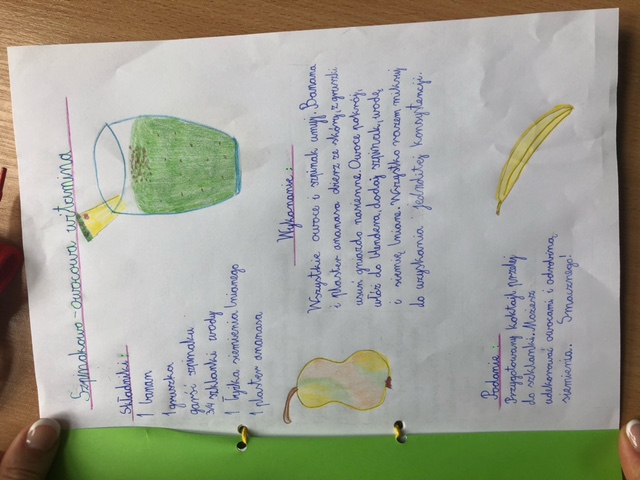 Szpinakowo-owocowa witamina
Składniki:
1 banan
1 gruszka
garść szpinaku
3/4 szklanki wody
1 łyżka siemienia lnianego
1 plaster ananasa
Wykonanie:
Wszystkie owoce i szpinak umyj. Banana
i plaster ananasa obierz ze skóry, z gruszki
usuń gniazdo nasienne. Owoce pokrój,
włóż do blendera, dodaj szpinak, wodę
i siemię lniane. Wszystko razem miksuj
do uzyskania jednolitej konsystencji.
Podanie:
Przygotowany koktajl przelej
do szklanki. Możesz
udekorować owocami i odrobiną
siemienia. Smacznego!